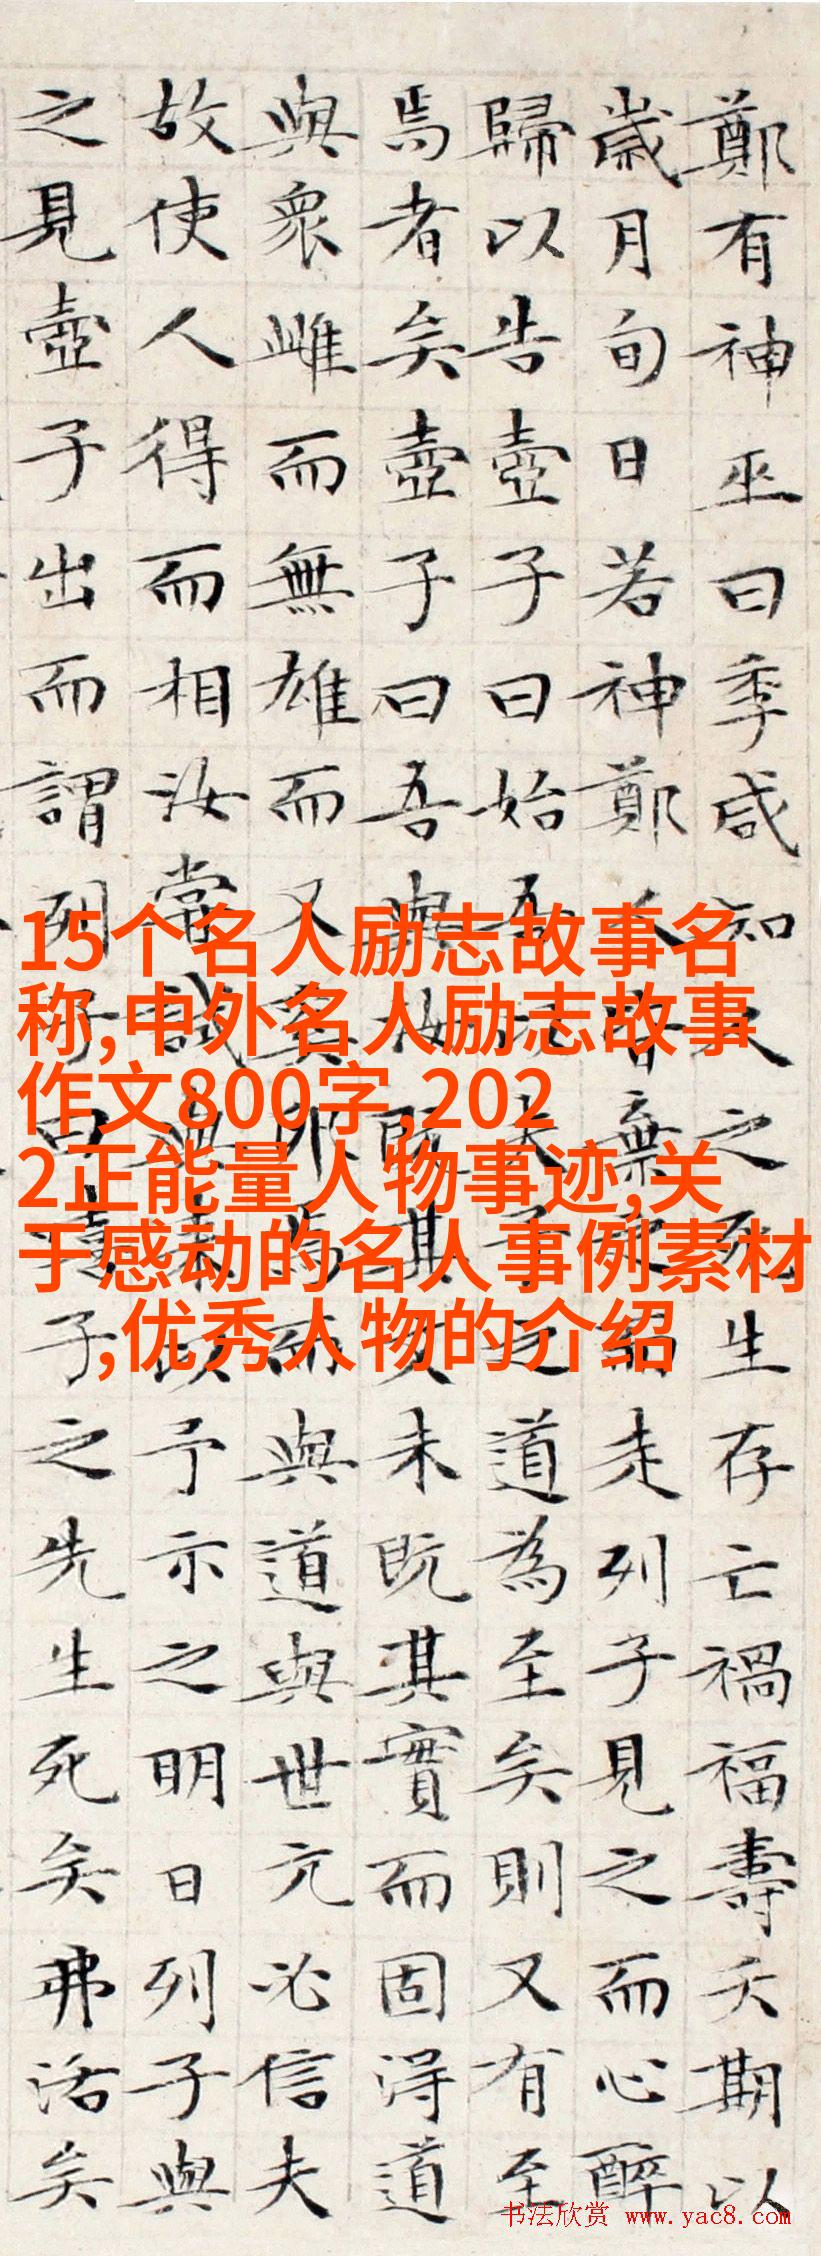 鄭有神巫曰季咸知人之死生存亡禍福壽夭期以
歲月旬日若神鄭人皆棄走列子見之而心醉
歸以告壺子曰始吾以夫子之道為至矣則又有至
焉者矣壺子曰吾與汝既其文未既其實而固得道
與眾雌而無雄而又奚卵焉而與道與世亢必信夫
故使人得而相汝嘗試與來以予示之明日列子與
之見壺子出而謂列子曰譆子之先生死矣弗活矣
15个名人励志故事名
称,中外名人励志故事
作文800字,202
2正能量人物事迹,关
于感动的名人事例素材
,优秀人物的介绍
书法欣赏 www.yac8.com